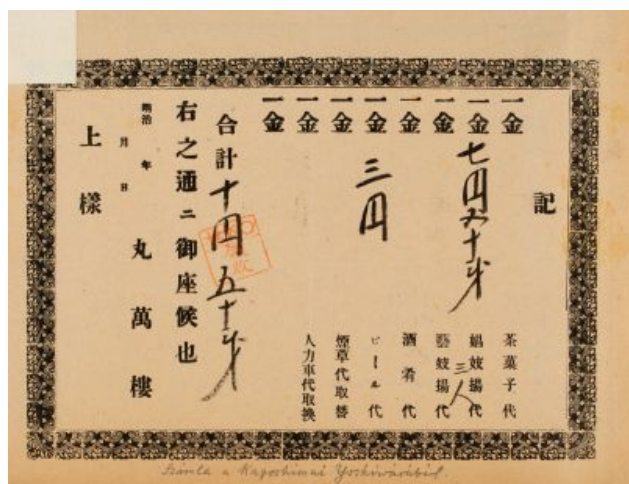 記
一金 茶菓子代
一金 七円五十戔 娼妓揚代 三人
一金 藝妓揚代
一金 酒肴代
一金 三円 ビール代
一金 煙草代取替
一金 人力車代取換
一金
合計 十円五十戔
右之通ニ御座候也
明治 年 月 日
丸萬樓
上樣
Számla a Kagoshimai Yoshiwarából.